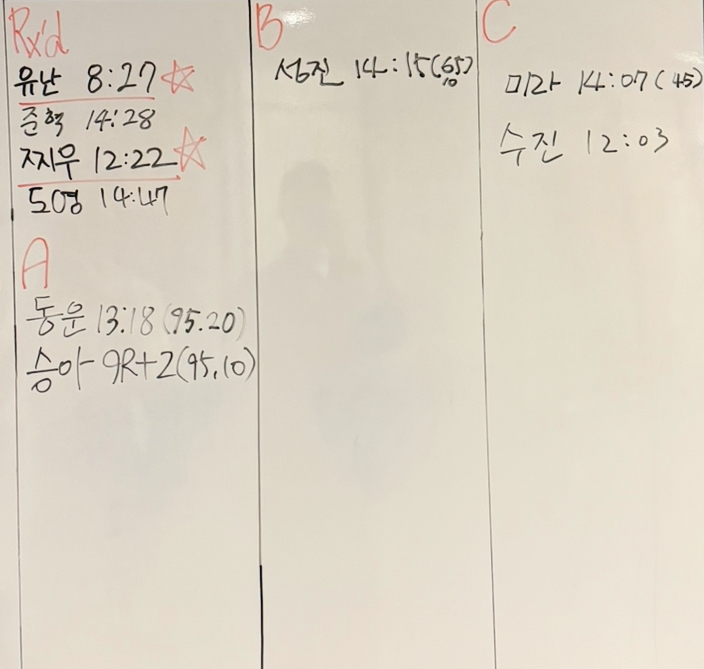 Rx'd
유난 8:27
준혁 14:28
찌우 12:22
도영 14:47
A
동운 13:18 (95.20)
승아 9R+2(95.10)
B
성진 14:15(65)
C
미라 14:07(45)
수진 12:03